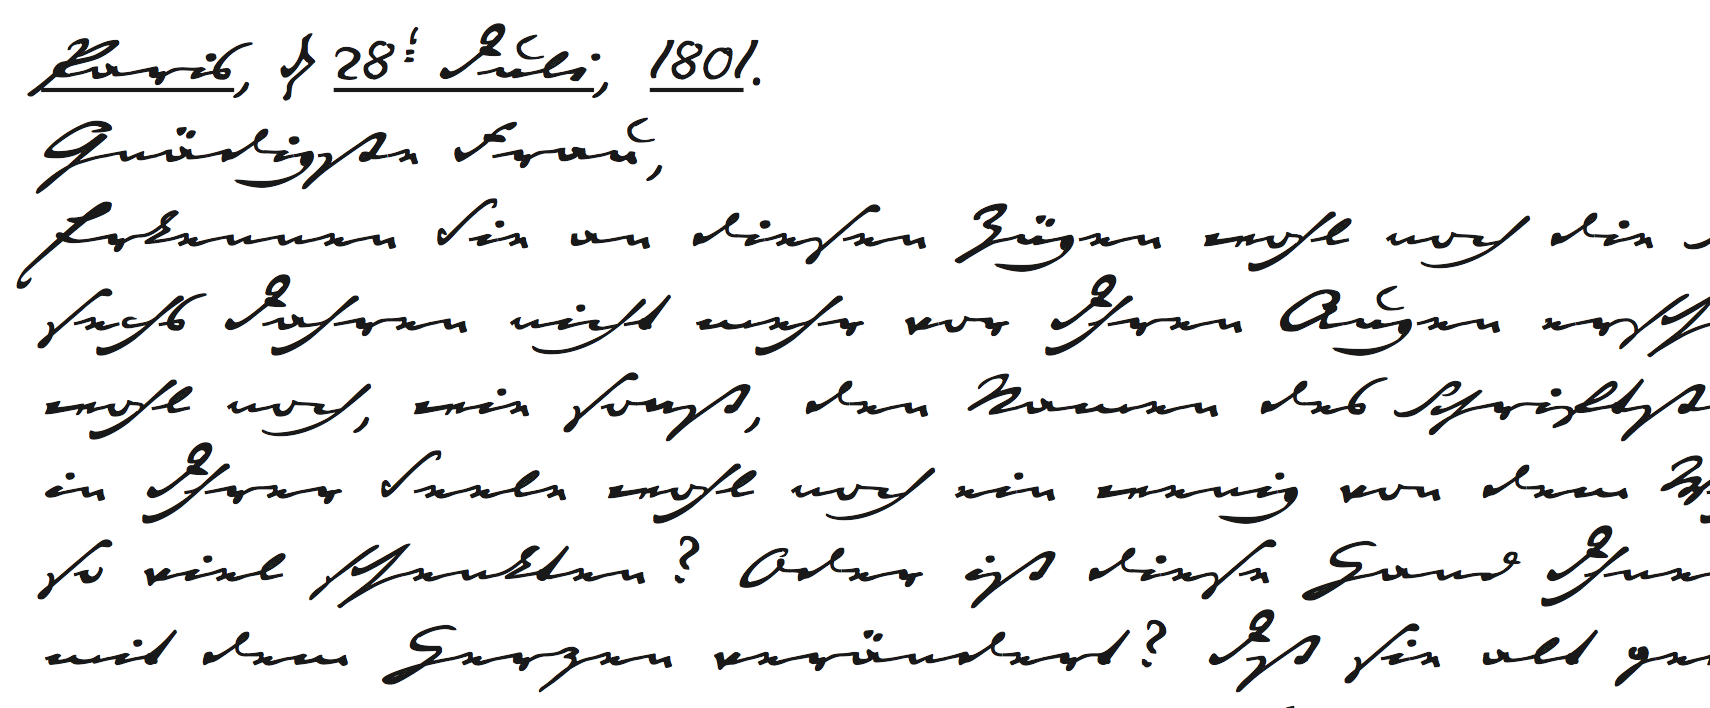 Paris, d 28t Juli, 1801.
Gnädigste Frau,
Erkennen Sie an diesen Zügen wohl noch die
sechs Jahren nicht mehr vor Ihren Augen ersch
wohl noch, wie sonst, den Namen des Schriftst
in Ihrer Seele wohl noch ein wenig von dem W
so viel schenkten? Oder ist diese Hand Ihne
mit dem Herzen verändert? Ist sie alt gew